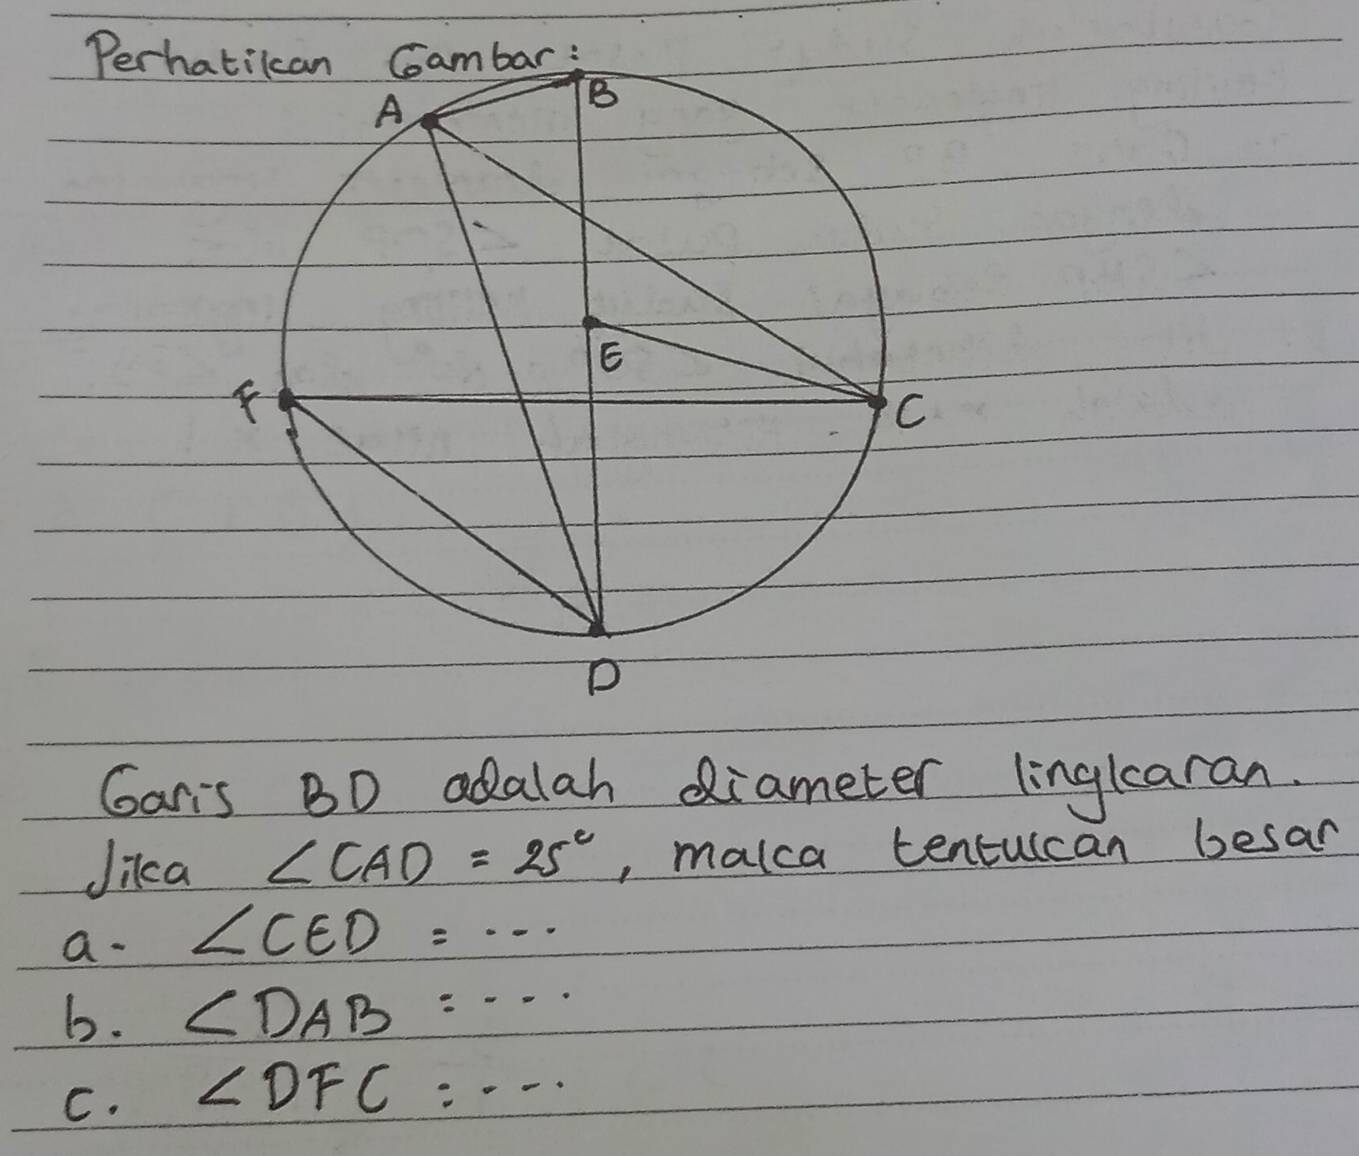 Perhatikan Gambar:
A
B
E
F
C
D
Garis BD adalah diameter lingkaran.
Jika ∠CAD = 25°, maka tentukan besar
a. ∠CED = ...
b. ∠DAB = ...
c. ∠DFC = ...